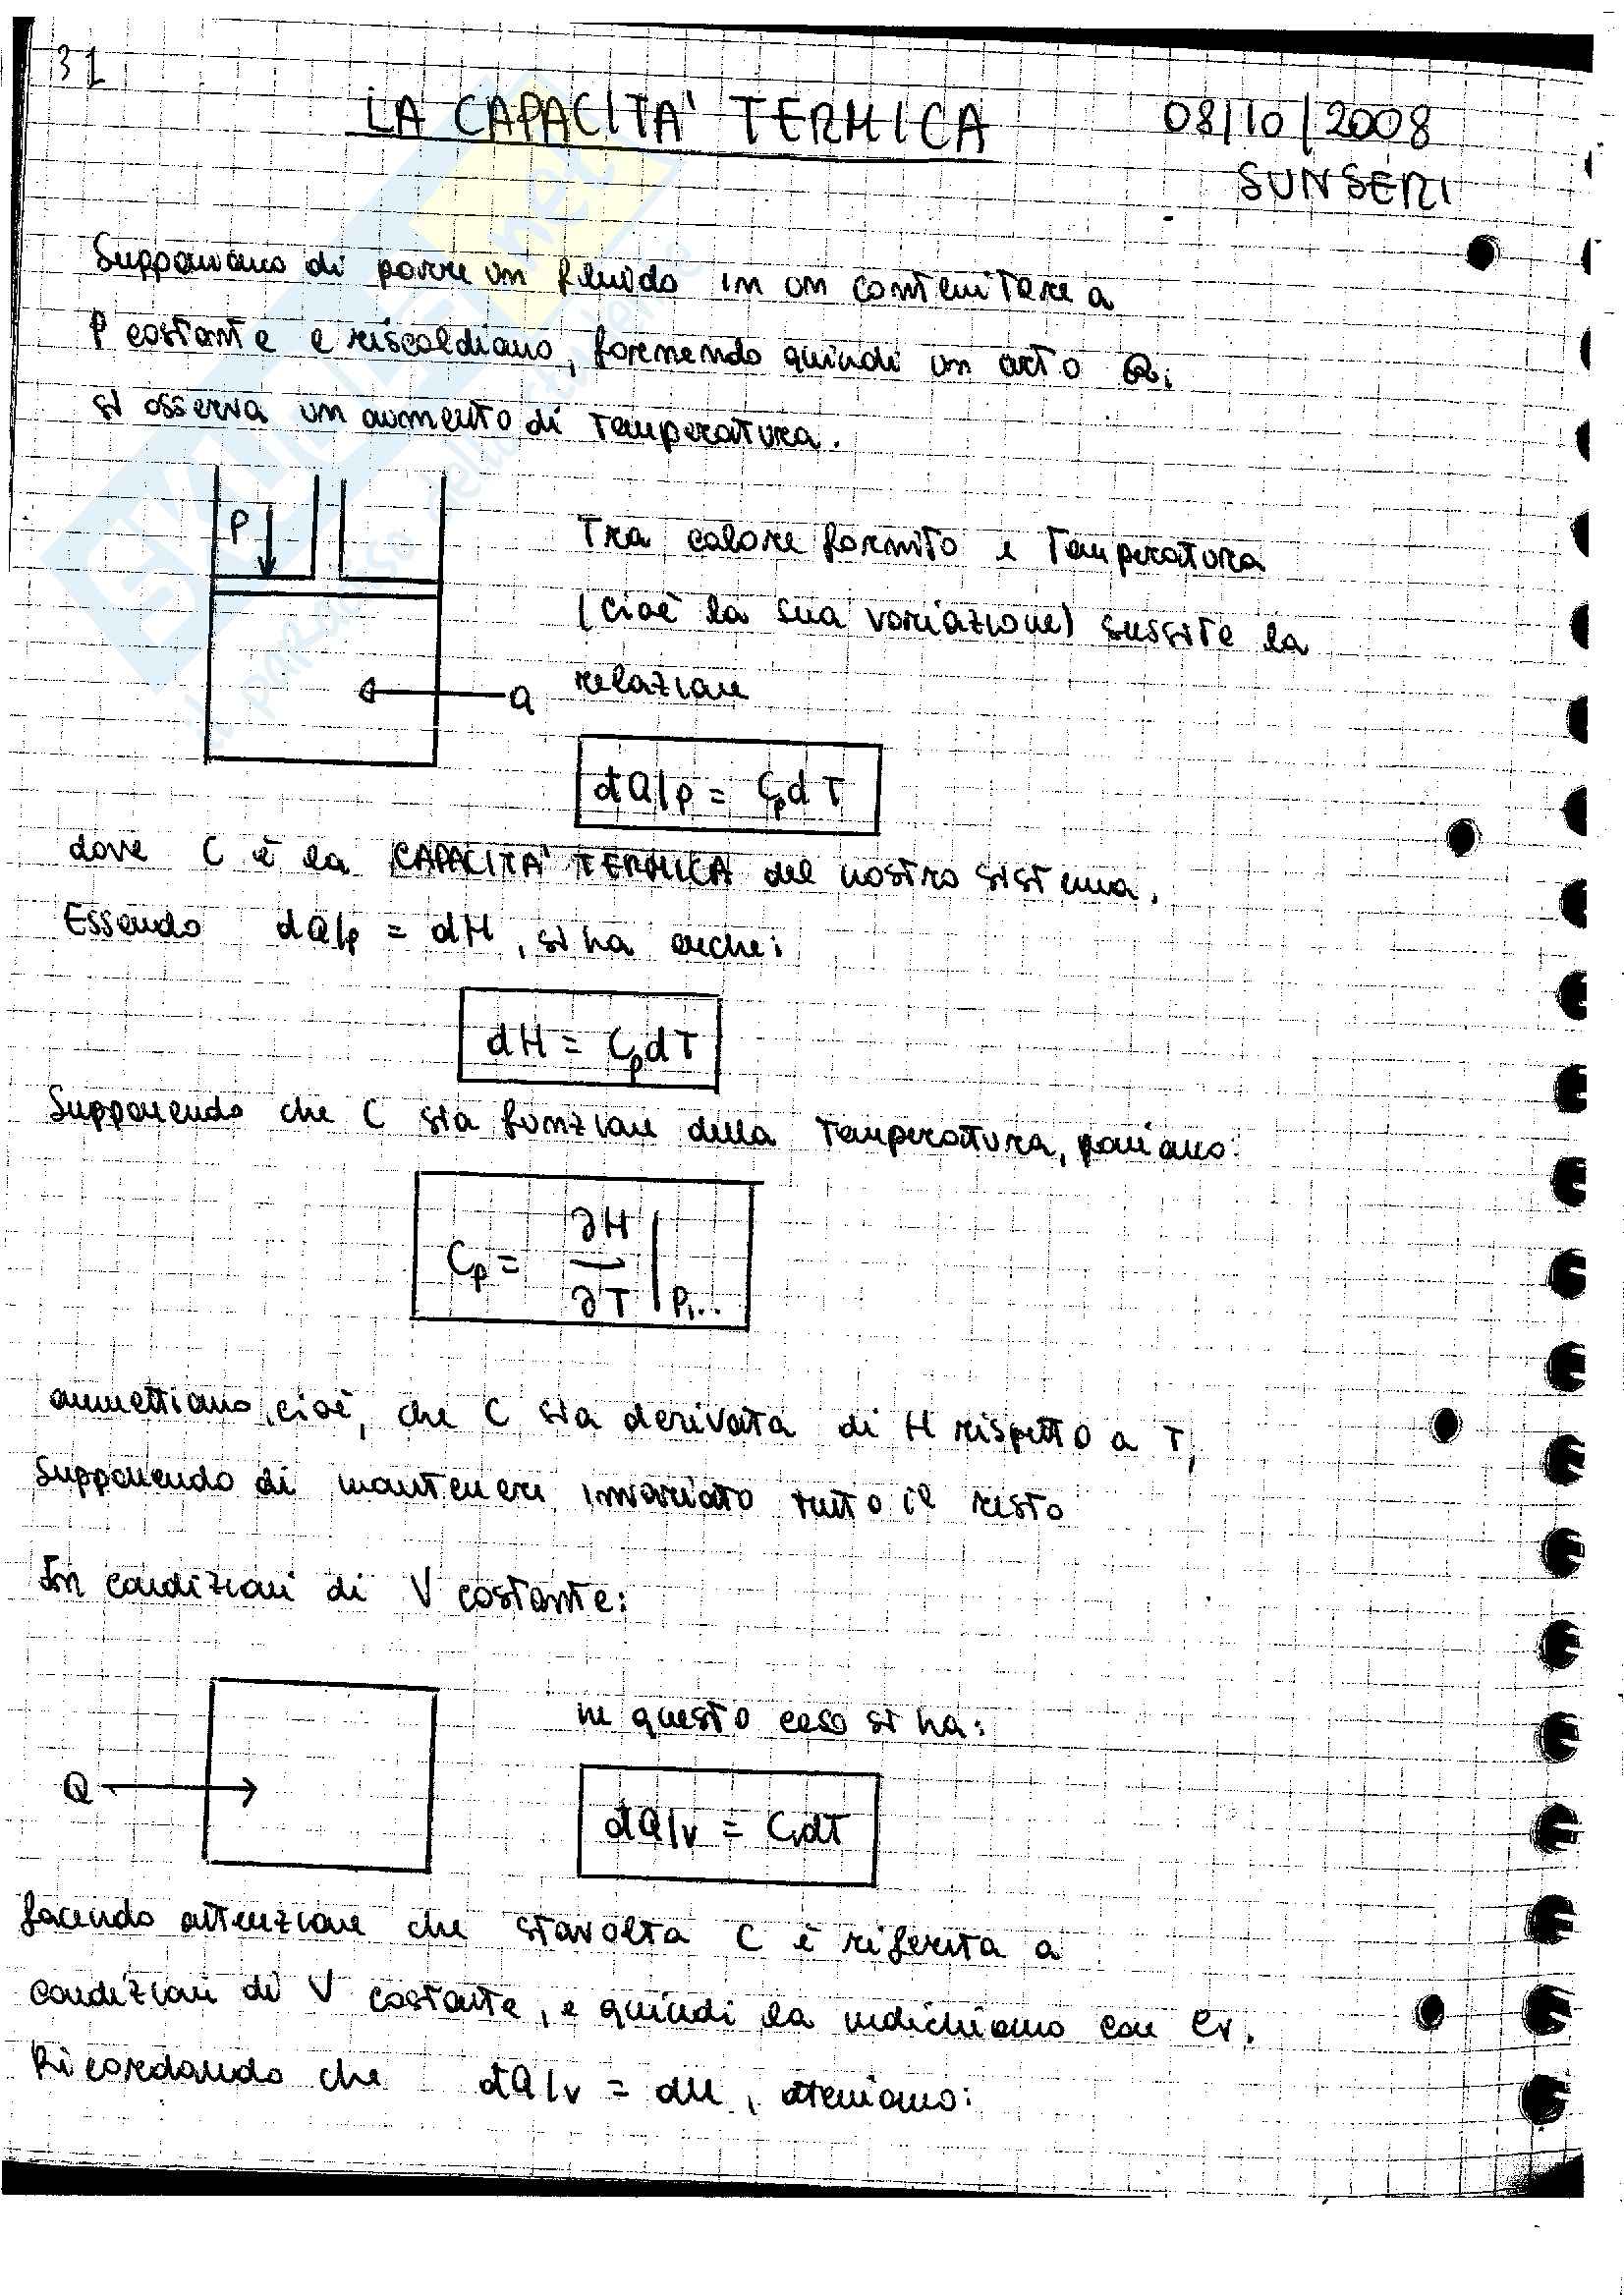 31
LA CAPACITA' TERMICA 08/10/2008
SUNSERI
Supponiamo di porre un fluido in un contenitore a
P costante e riscaldiamo, fornendo quindi un certo Q;
si osserva un aumento di temperatura.
P
Tra calore fornito e temperatura
(cioè la sua variazione) sussite la
Q relazione
đQ|p = Cp dT
dove C è la CAPACITA' TERMICA del nostro sistema.
Essendo dQ|p = dH, si ha anche:
dH = Cp dT
Supponendo che C sia funzione della temperatura, poniamo:
Cp = ∂H/∂T |P,..
ammettiamo, cioè, che C sia derivata di H rispetto a T,
supponendo di mantenere invariato tutto il resto
In condizioni di V costante:
in questo caso si ha:
Q
đQ|v = Cv dT
facendo attenzione che stavolta C è riferita a
condizioni di V costante, e quindi la indichiamo con Cv.
Ricordando che đQ|v = dU, otteniamo: